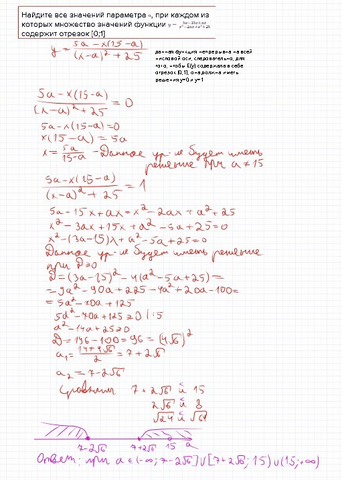 Найдите все значений параметра а, при каждом из
которых множество значений функции
содержит отрезок [0;1]
y = (5a - x(15-a)) / ((x-a)² + 25)
данная функция непрерывна на всей
числовой оси, следовательно, для
того, чтобы E(y) содержала в себе
отрезок [0;1], она должна иметь
решения y=0 и y=1
(5a - x(15-a)) / ((x-a)² + 25) = 0
5a - x(15-a) = 0
x(15-a) = 5a
x = 5a / (15-a) - Данное ур-е будет иметь
решение при a ≠ 15
(5a - x(15-a)) / ((x-a)² + 25) = 1
5a - 15x + ax = x² - 2ax + a² + 25
x² - 3ax + 15x + a² - 5a + 25 = 0
x² - (3a-15)x + a² - 5a + 25 = 0
Данное ур-е будет иметь решение
при D ≥ 0
D = (3a-15)² - 4(a² - 5a + 25) =
= 9a² - 90a + 225 - 4a² + 20a - 100 =
= 5a² - 70a + 125
5a² - 70a + 125 ≥ 0 | :5
a² - 14a + 25 ≥ 0
D = 196 - 100 = 96 = (4√6)²
a₁ = (14 + 4√6) / 2 = 7 + 2√6
a₂ = 7 - 2√6
Сравним 7 + 2√6 и 15
2√6 и 8
√24 и √64
7-2√6 7+2√6 15 a
Ответ: при a ∈ (-∞; 7-2√6] ∪ [7+2√6; 15) ∪ (15; +∞)